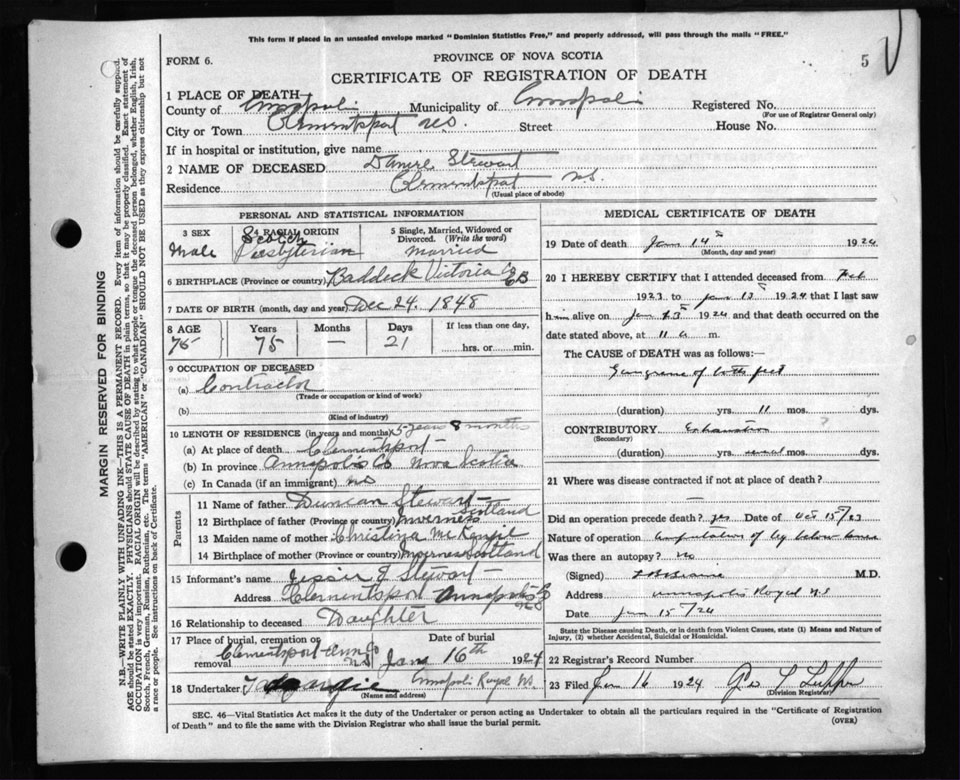 This form if placed in an unsealed envelope marked "Dominion Statistics Free," and properly addressed, will pass through the mails "FREE."
FORM 6.
PROVINCE OF NOVA SCOTIA
5
CERTIFICATE OF REGISTRATION OF DEATH
1 PLACE OF DEATH—
County of Annapolis Municipality of Annapolis Registered No.
(For use of Registrar General only)
City or Town Clementsport N.S. Street House No.
If in hospital or institution, give name
2 NAME OF DECEASED Daniel Stewart
Residence Clementsport N.S.
(Usual place of abode)
PERSONAL AND STATISTICAL INFORMATION
3 SEX
Male
4 RACIAL ORIGIN
Scotch
Presbyterian
5 Single, Married, Widowed or Divorced. (Write the word)
Married
6 BIRTHPLACE (Province or country) Baddeck Victoria Co CB
7 DATE OF BIRTH (month, day and year) Dec 24. 1848
8 AGE Years Months Days If less than one day,
75 75 — 21 hrs. or min.
9 OCCUPATION OF DECEASED
(a) Contractor
(Trade or occupation or kind of work)
(b)
(Kind of industry)
10 LENGTH OF RESIDENCE (in years and months) 5 years 8 months
(a) At place of death Clementsport
(b) In province Annapolis Co Nova Scotia
(c) In Canada (if an immigrant) no
Parents
11 Name of father Duncan Stewart
12 Birthplace of father (Province or country) Inverness Scotland
13 Maiden name of mother Christina McKenzie
14 Birthplace of mother (Province or country) Inverness Scotland
15 Informant's name Jessie J Stewart
Address Clementsport Annapolis Co NS
16 Relationship to deceased Daughter
17 Place of burial, cremation or removal Clementsport Ann Co NS
Date of burial
Jan 16th 1924
18 Undertaker Annapolis Royal NS
(Name and address)
MEDICAL CERTIFICATE OF DEATH
19 Date of death Jan 14 1924
(Month, day and year)
20 I HEREBY CERTIFY that I attended deceased from Feb
1923 to Jan 13 1924 that I last saw
him alive on Jan 13 1924 and that death occurred on the
date stated above, at 11 a m.
The CAUSE OF DEATH was as follows:—
Gangrene of both feet
(duration) yrs. 11 mos. dys.
CONTRIBUTORY Exhaustion
(Secondary)
(duration) yrs. mos. dys.
21 Where was disease contracted if not at place of death?
Did an operation precede death? yes Date of Oct 15/23
Nature of operation amputation of leg below knee
Was there an autopsy? No
(Signed) M.D.
Address Annapolis Royal N.S
Date Jan 15/24
State the Disease causing Death, or in death from Violent Causes, state (1) Means and Nature of Injury, (2) whether Accidental, Suicidal or Homicidal.
22 Registrar's Record Number
23 Filed Jan 16 1924 Geo L
(Division Registrar)
SEC. 46—Vital Statistics Act makes it the duty of the Undertaker or person acting as Undertaker to obtain all the particulars required in the "Certificate of Registration
of Death" and to file the same with the Division Registrar who shall issue the burial permit.
(OVER)
MARGIN RESERVED FOR BINDING
N.B.—WRITE PLAINLY WITH UNFADING INK—THIS IS A PERMANENT RECORD. Every item of information should be carefully supplied.
AGE should be stated EXACTLY. PHYSICIANS should STATE CAUSE OF DEATH in plain terms, so that it may be properly classified. Exact statement of
OCCUPATION is very important. RACIAL ORIGIN will be described by stating to what people or tongue the deceased person belonged, whether English, Irish,
Scotch, French, German, Russian, Ruthenian, etc. The terms "AMERICAN" or "CANADIAN" SHOULD NOT BE USED as they express citizenship but not
a race or people. See instructions on back of Certificate.